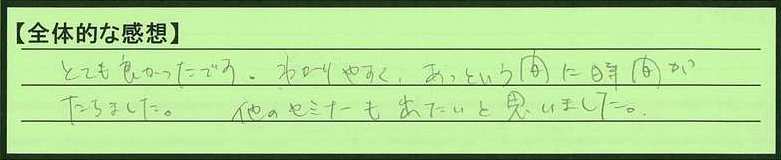 【全体的な感想】
とても良かったです。わかりやすく、あっという間に時間が
たちました。 他のセミナーも出たいと思いました。